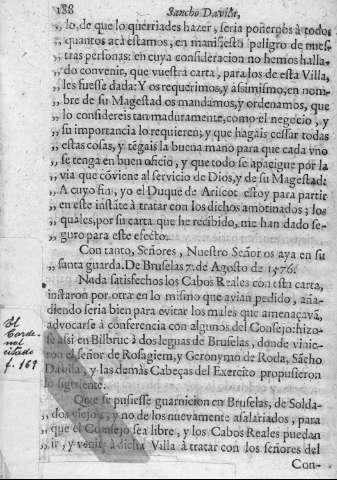 188 Sancho Davila,
„ lo, de que lo querriades hazer, seria ponernos à todos
„ quantos acà estamos, en manifiesto peligro de nues-
„ tras personas: en cuya consideracion no hemos halla-
„ do convenir, que vuestra carta, para los de esta Villa,
„ les fuesse dada: Y os requerimos, y assimismo, en nom-
„ bre de su Magestad os mandamos, y ordenamos, que
„ lo considereis tan maduramente, como el negocio, y
„ su importancia lo requieren; y que hagais cessar todas
„ estas cosas, y tẽgais la buena mano para que cada vno
„ se tenga en buen oficio, y que todo se apacigue por la
„ via que cõviene al servicio de Dios, y de su Magestad:
„ A cuyo fin, yo el Duque de Ariscot estoy para partir
„ en este instãte à tratar con los dichos amotinados; los
„ quales, por su carta que he recibido, me han dado se-
„ guro para este efecto.
Con tanto, Señores, Nuestro Señor os aya en su
„ santa guarda. De Bruselas 7. de Agosto de 1576.
Nada satisfechos los Cabos Reales con esta carta,
instaron por otra en lo mismo que avian pedido, aña-
diendo seria bien para evitar los males que amenaçava,
advocarse à conferencia con algunos del Consejo: hizo-
se assi en Bilbruc à dos leguas de Bruselas, donde vinie-
ron el señor de Rosagiem, y Geronymo de Roda, Sãcho
Davila, y las demàs Cabeças del Exercito propusieron
lo siguiente.
El
Carde-
nal
citado
f. 169
Que se pusiesse guarnicion en Bruselas, de Solda-
„ dos viejos, y no de los nuevamente asalariados, para
„ que el Consejo sea libre, y los Cabos Reales puedan
„ ir, y venir à dicha Villa à tratar con los señores del
Con-